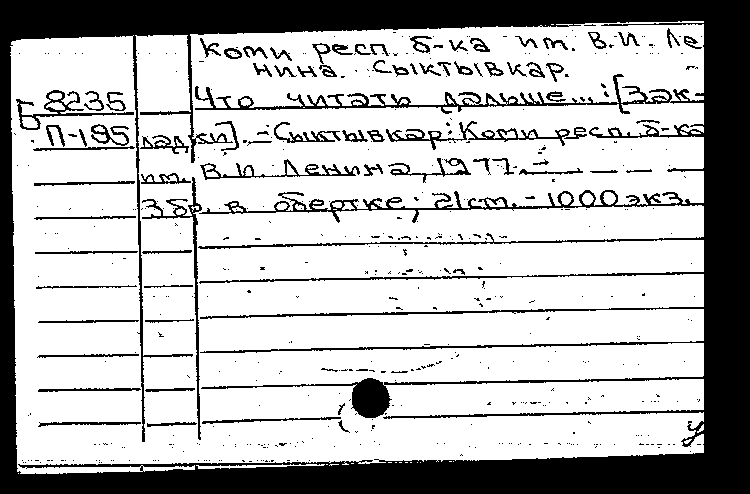 Коми респ. б-ка им. В.И. Ле
нина. Сыктывкар.
Б 8235
П-195
Что читать дальше...: [Зак-
ладки]. - Сыктывкар: Коми респ. б-ка
им. В.И. Ленина, 1977. -
3 бр. в обертке; 21 ст. - 1000 экз.
у